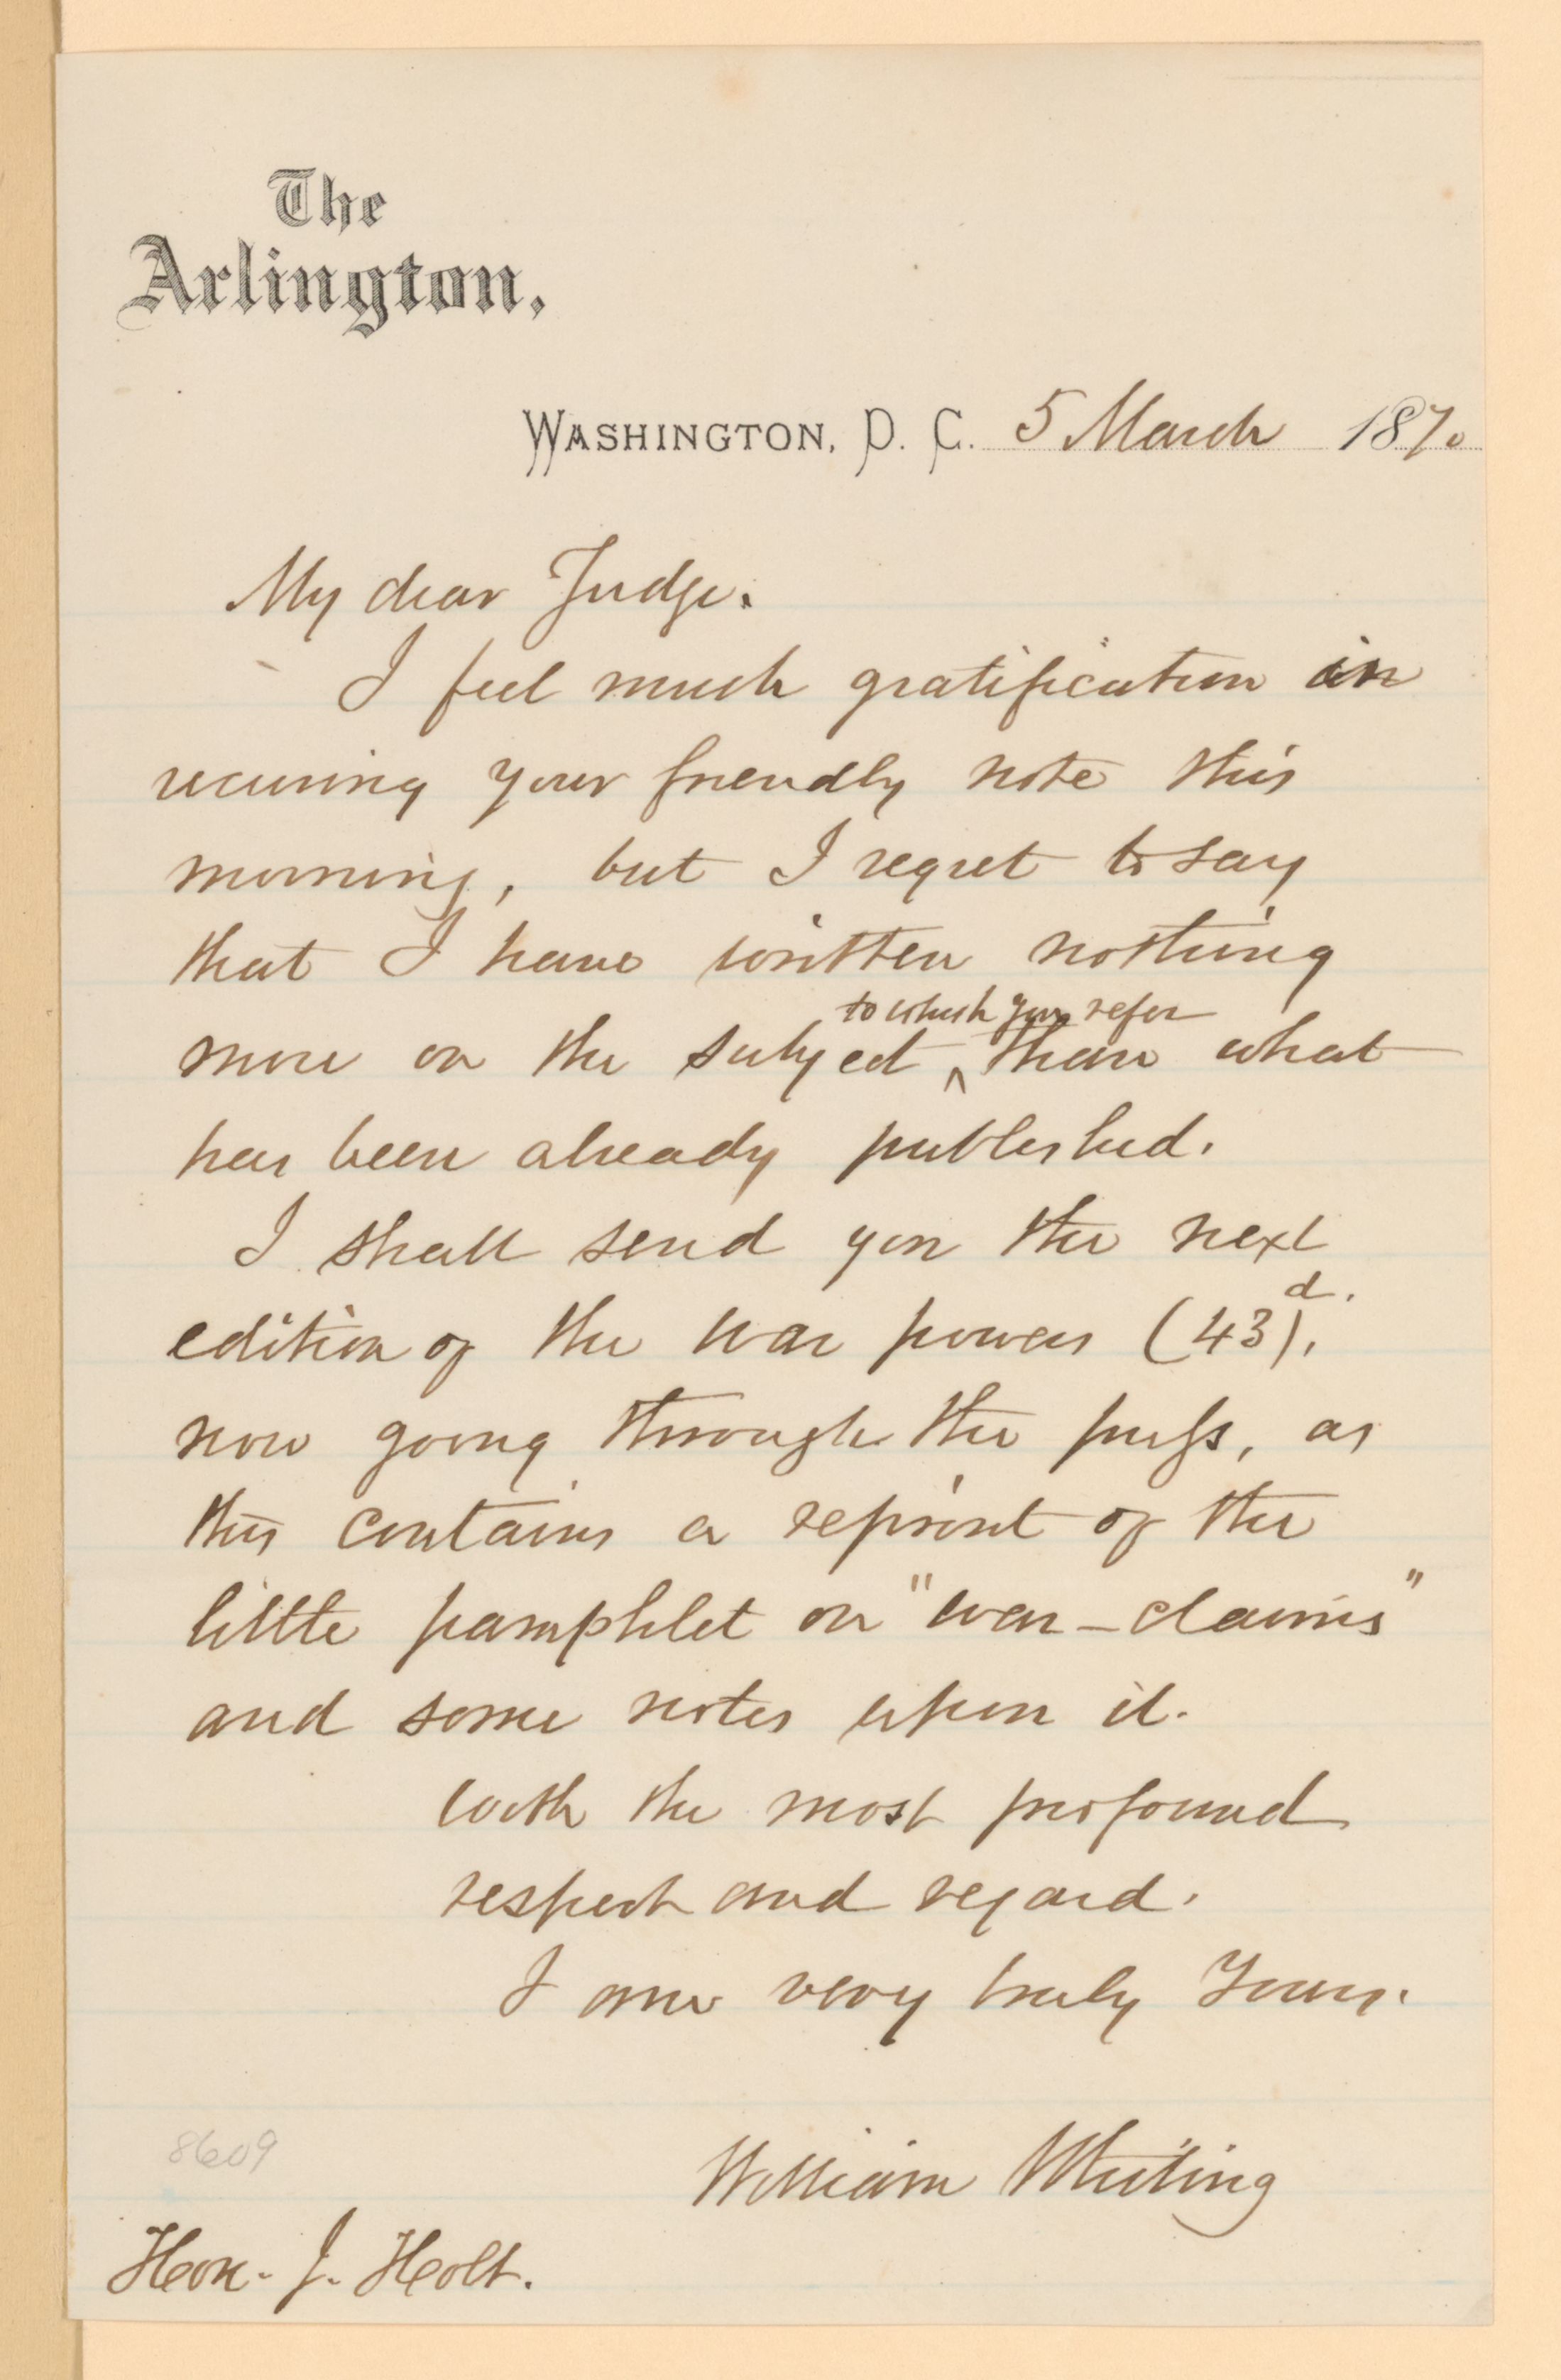 The
Arlington,
WASHINGTON, D. C. 5 March 1870
My dear Judge.
I feel much gratification in
receiving your friendly note this
morning, but I regret to say
that I have written nothing
to which you refer
more on the subject ^ than what
has been already published.
I shall send you the next
edition of the war powers (43d).
now going through the press, as
this contains a reprint of the
little pamphlet on "war-claims"
and some notes upon it.
with the most profound
respect and regard.
I am very truly Yours.
William Whiting
8609
Hon. J. Holt.